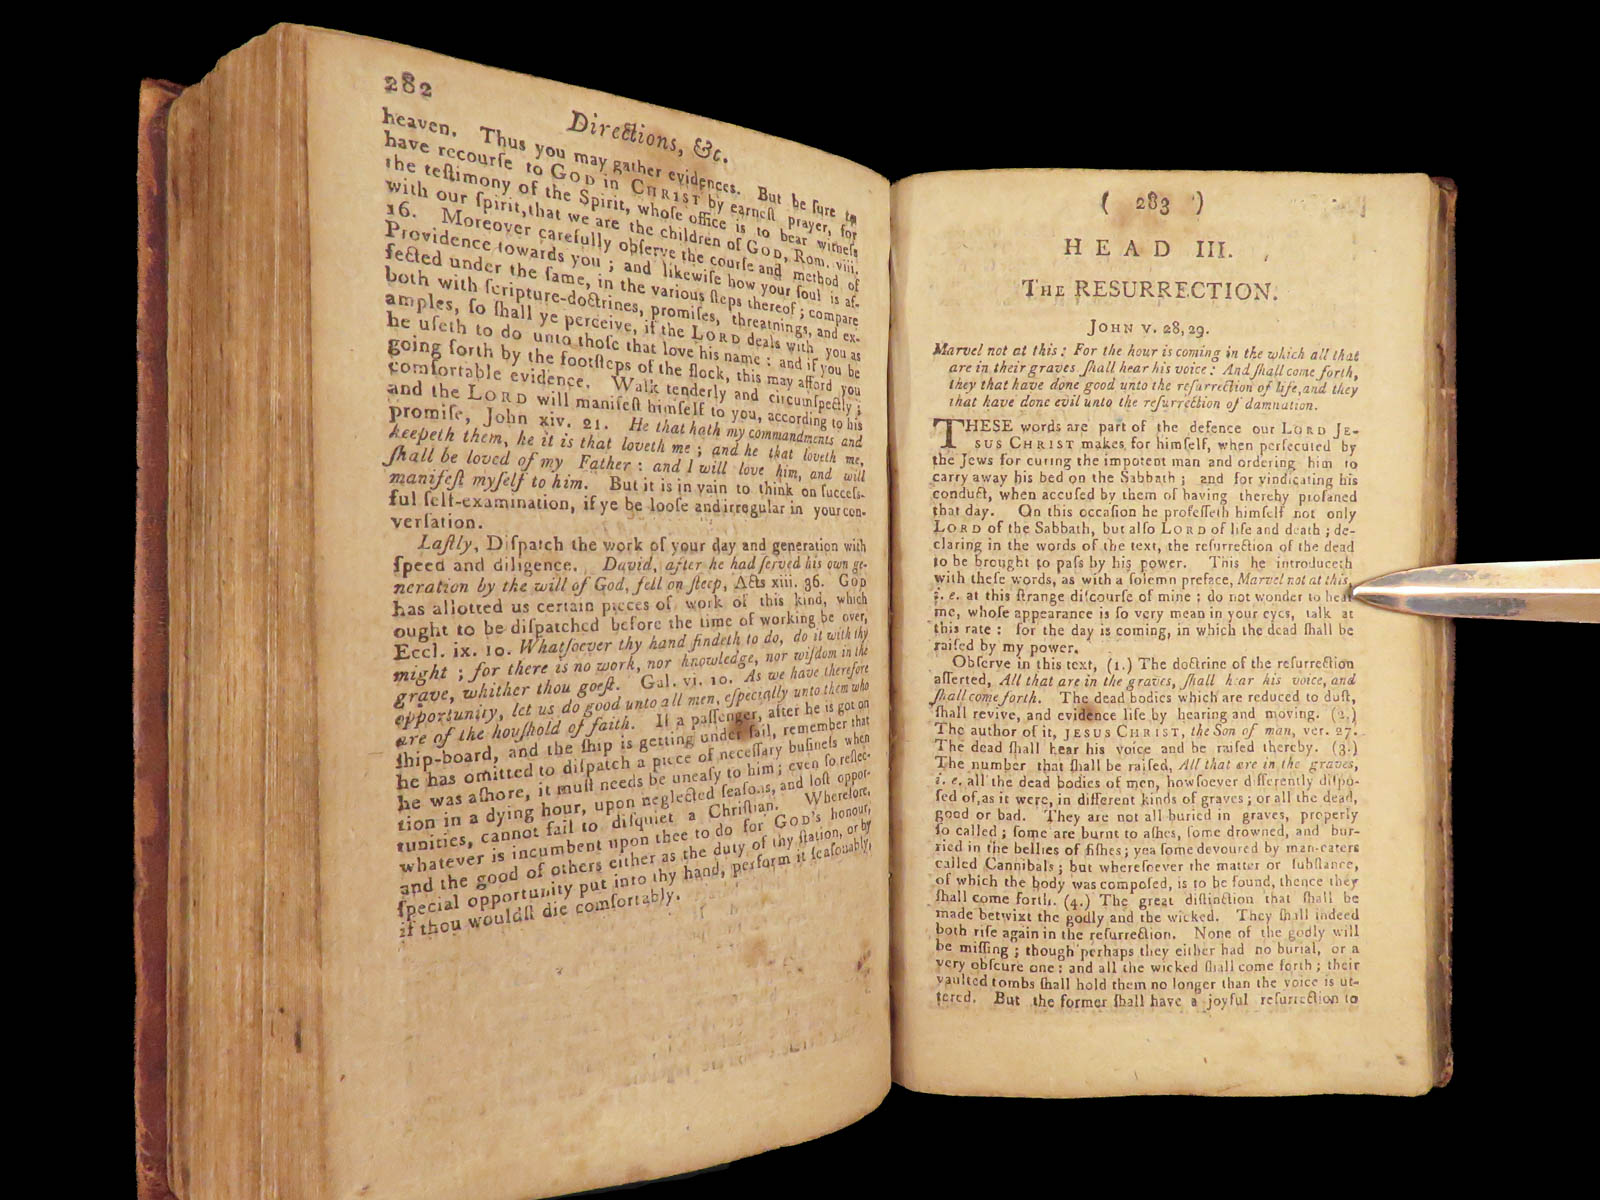 282
Directions, &c.
heaven. Thus you may gather evidences. But be ſure to
have recourſe to GOD in CHRIST by earneſt prayer, for
the teſtimony of the Spirit, whoſe office is to bear witneſs
with our ſpirit, that we are the children of GOD, Rom. viii.
16. Moreover carefully obſerve the courſe and method of
Providence towards you; and likewiſe how your ſoul is af-
fected under the ſame, in the various ſteps thereof; compare
both with ſcripture-doctrines, promiſes, threatnings, and ex-
amples, ſo ſhall ye perceive, if the LORD deals with you as
he uſeth to do unto thoſe that love his name: and if you be
going forth by the footſteps of the flock, this may afford you
comfortable evidence. Walk tenderly and circumſpectly;
and the LORD will manifeſt himſelf to you, according to his
promiſe, John xiv. 21. He that hath my commandments and
keepeth them, he it is that loveth me; and he that loveth me,
ſhall be loved of my Father: and I will love him, and will
manifeſt myſelf to him. But it is in vain to think on ſucceſs-
ful ſelf-examination, if ye be looſe and irregular in your con-
verſation.
Laſtly, Diſpatch the work of your day and generation with
ſpeed and diligence. David, after he had ſerved his own ge-
neration by the will of God, fell on ſleep, Acts xiii. 36. GOD
has allotted us certain pieces of work of this kind, which
ought to be diſpatched before the time of working be over,
Eccl. ix. 10. Whatſoever thy hand findeth to do, do it with thy
might; for there is no work, nor knowledge, nor wiſdom in the
grave, whither thou goeſt. Gal. vi. 10. As we have therefore
opportunity, let us do good unto all men, eſpecially unto them who
are of the houſhold of faith. If a paſſenger, after he is got on
ſhip-board, and the ſhip is getting under ſail, remember that
he has omitted to diſpatch a piece of neceſſary buſineſs when
he was aſhore, it muſt needs be uneaſy to him; even ſo reflec-
tion in a dying hour, upon neglected ſeaſons, and loſt oppor-
tunities, cannot fail to diſquiet a Chriſtian. Wherefore,
whatever is incumbent upon thee to do for GOD's honour,
and the good of others either as the duty of thy ſtation, or by
ſpecial opportunity put into thy hand, perform it ſeaſonably,
if thou wouldſt die comfortably.
( 283 )
HEAD III.
THE RESURRECTION.
JOHN V. 28, 29.
Marvel not at this: For the hour is coming in the which all that
are in their graves ſhall hear his voice: And ſhall come forth,
they that have done good unto the reſurrection of life, and they
that have done evil unto the reſurrection of damnation.
THESE words are part of the defence our LORD JE-
SUS CHRIST makes for himſelf, when perſecuted by
the Jews for curing the impotent man and ordering him to
carry away his bed on the Sabbath; and for vindicating his
conduct, when accuſed by them of having thereby profaned
that day. On this occaſion he profeſſeth himſelf not only
LORD of the Sabbath, but alſo LORD of life and death; de-
claring in the words of the text, the reſurrection of the dead
to be brought to paſs by his power. This he introduceth
with theſe words, as with a ſolemn preface, Marvel not at this,
i. e. at this ſtrange diſcourſe of mine: do not wonder to hear
me, whoſe appearance is ſo very mean in your eyes, talk at
this rate: for the day is coming, in which the dead ſhall be
raiſed by my power.
Obſerve in this text, (1.) The doctrine of the reſurrection
aſſerted, All that are in the graves, ſhall hear his voice, and
ſhall come forth. The dead bodies which are reduced to duſt,
ſhall revive, and evidence life by hearing and moving. (2.)
The author of it, JESUS CHRIST, the Son of man, ver. 27.
The dead ſhall hear his voice and be raiſed thereby. (3.)
The number that ſhall be raiſed, All that are in the graves,
i. e. all the dead bodies of men, howſoever differently diſpo-
ſed of, as it were, in different kinds of graves; or all the dead,
good or bad. They are not all buried in graves, properly
ſo called; ſome are burnt to aſhes, ſome drowned, and bur-
ried in the bellies of fiſhes; yea ſome devoured by man-eaters
called Cannibals; but whereſoever the matter or ſubſtance,
of which the body was compoſed, is to be found, thence they
ſhall come forth. (4.) The great diſtinction that ſhall be
made betwixt the godly and the wicked. They ſhall indeed
both riſe again in the reſurrection. None of the godly will
be miſſing; though perhaps they either had no burial, or a
very obſcure one: and all the wicked ſhall come forth; their
vaulted tombs ſhall hold them no longer than the voice is ut-
tered. But the former ſhall have a joyful reſurrection to